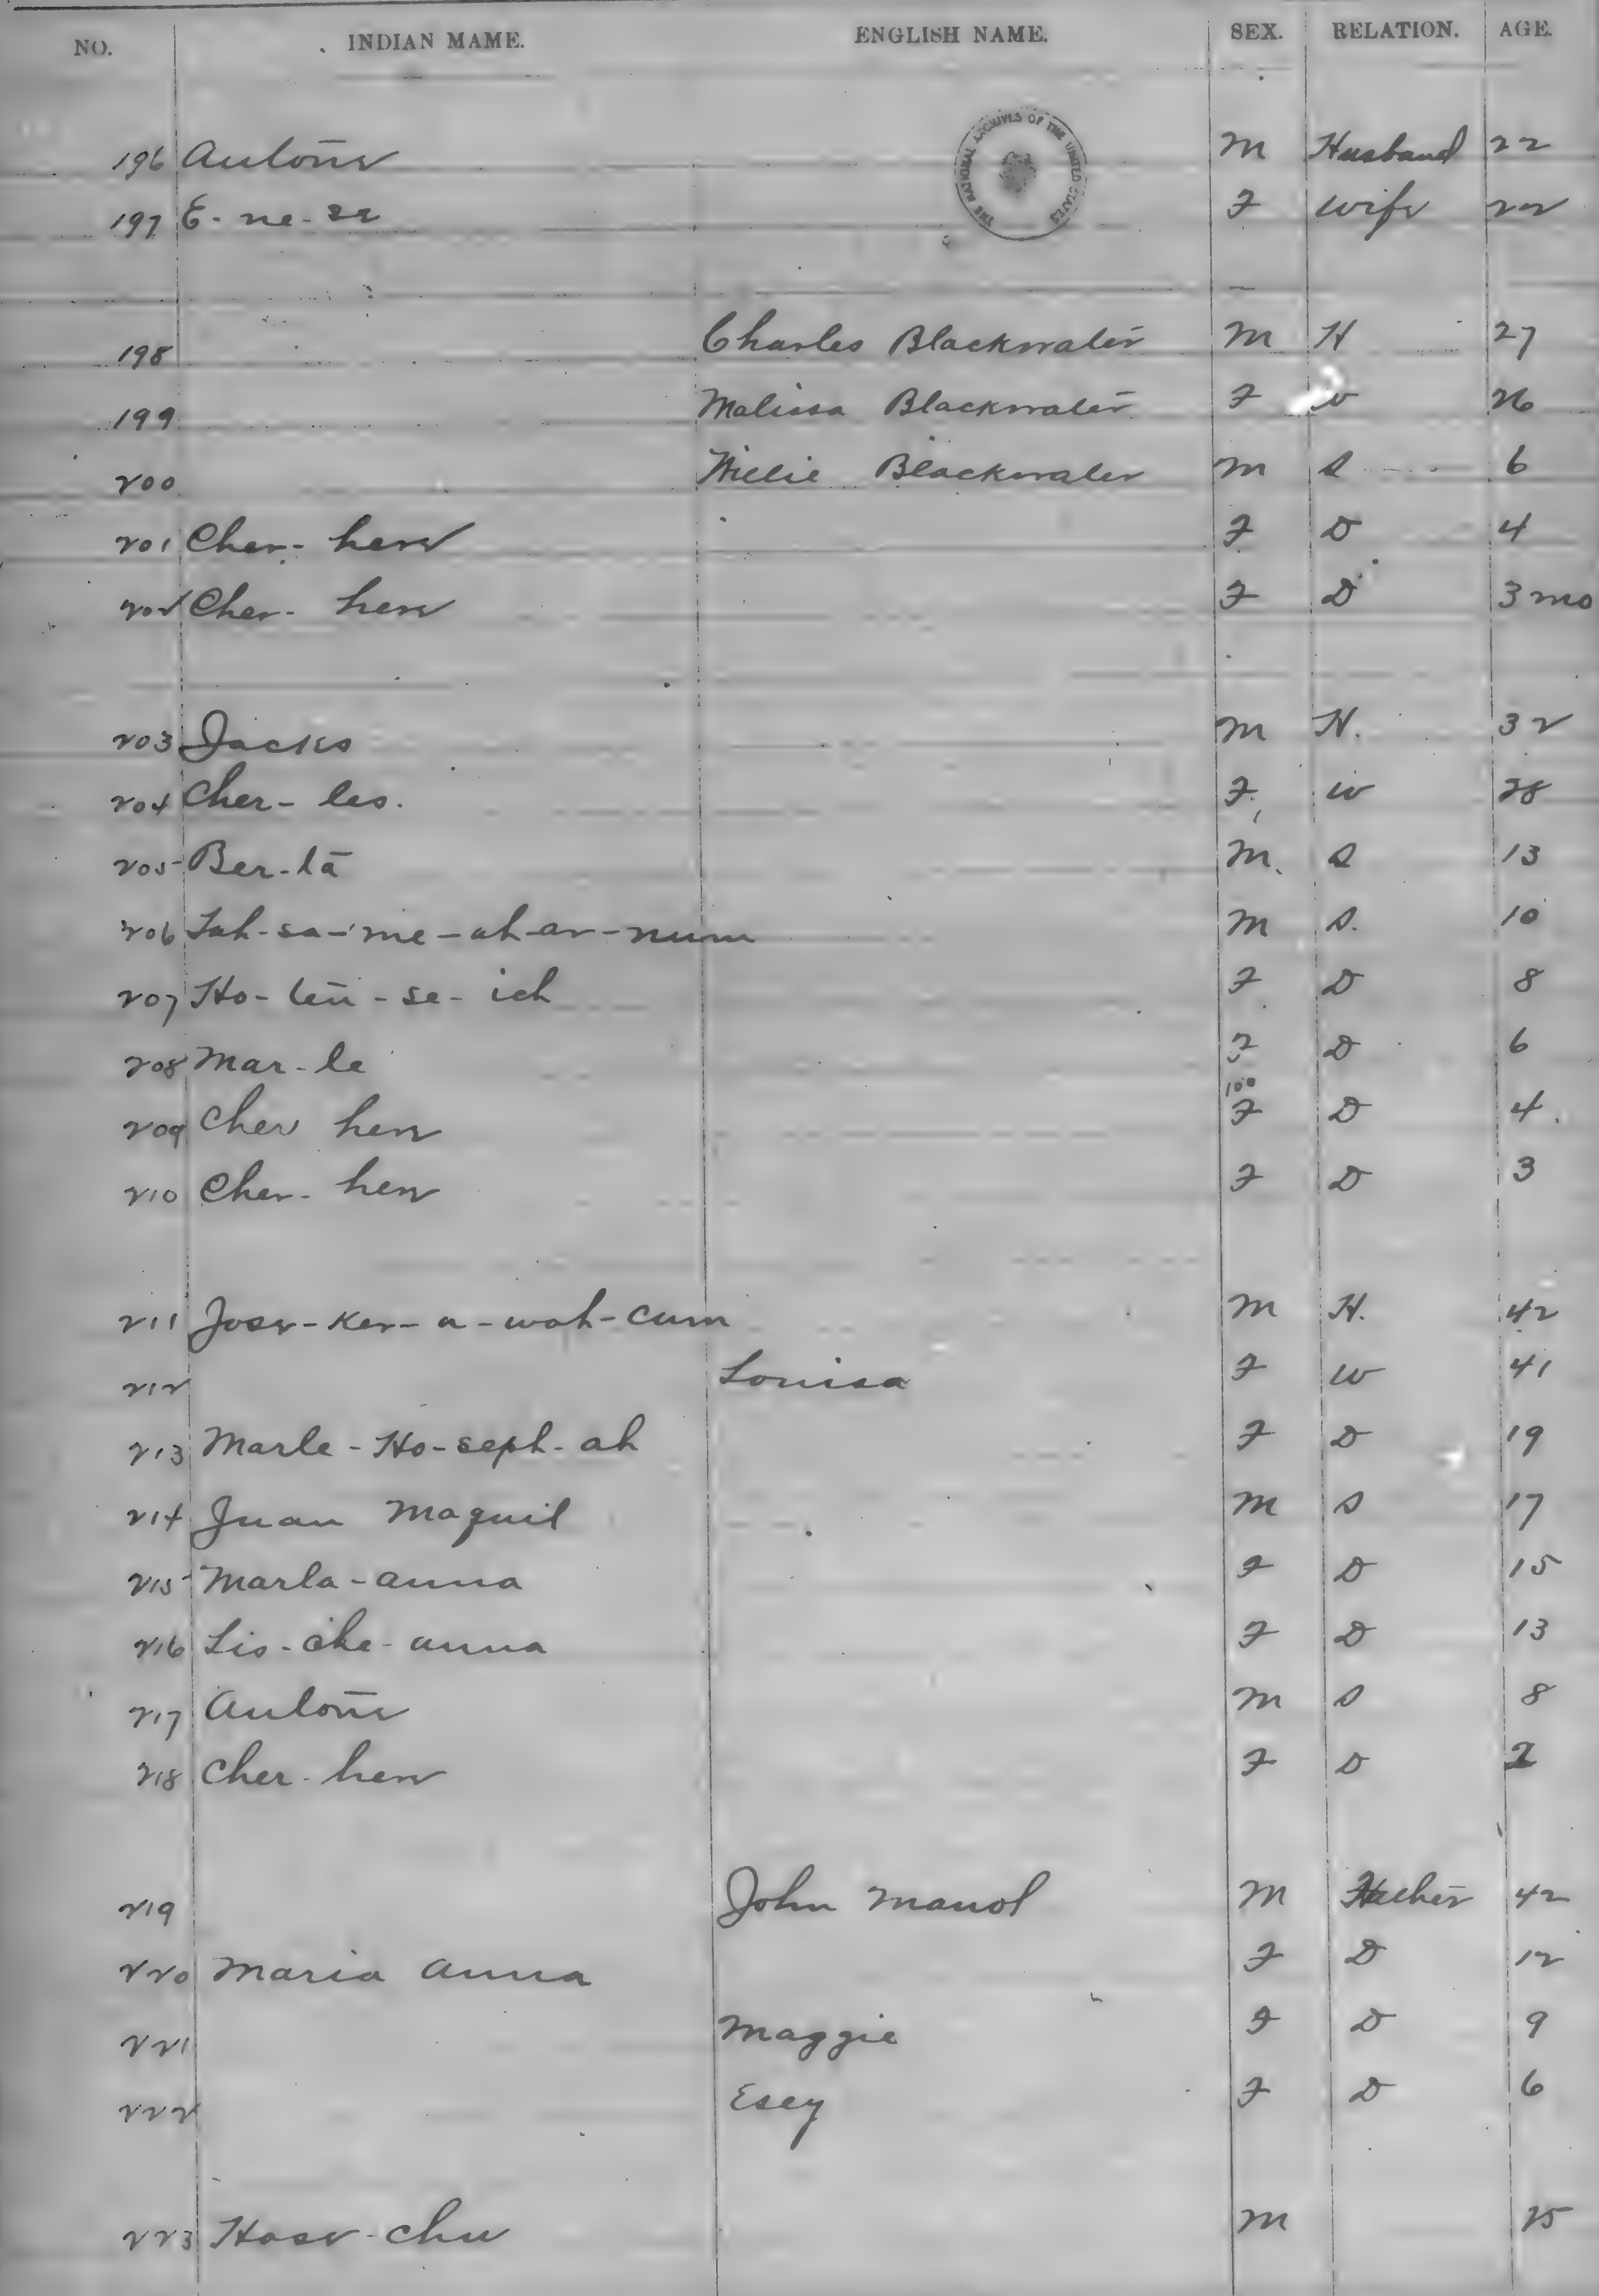 NO. INDIAN MAME. ENGLISH NAME. SEX. RELATION. AGE.
THE NATIONAL ARCHIVES OF THE UNITED STATES
196 Antone M Husband 22
197 E-ne-se F wife 22
198 Charles Blackwater M H 27
199 Malissa Blackwater F W 26
200 Willie Blackwater M S 6
201 Cher-hew F D 4
202 Cher-hew F D 3 mo
203 Jacks M H. 32
204 Cher-les. F. W 28
205 Ber-tā M. S 13
206 M S. 10
207 F D 8
208 Mar-le F D 6
100
209 Cher hew F D 4.
210 Cher-hew F D 3
211 Jose-Ker-a-wah-cum M H. 42
212 Louisa F W 41
213 Marle-Ho-seph-ah F D 19
214 Juan Maguil M S 17
215 Marla-anna F D 15
216 Lis-che-anna F D 13
217 Antone M S 8
218 Cher-hew F D 2
219 John Manol M Father 42
220 Maria anna F D 12
221 Maggie F D 9
222 Esey F D 6
223 Hose-chu M 25